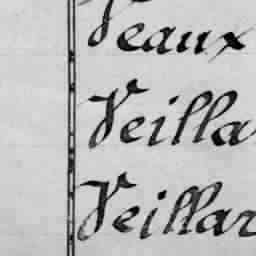 Veaux
Veilla
Veillar